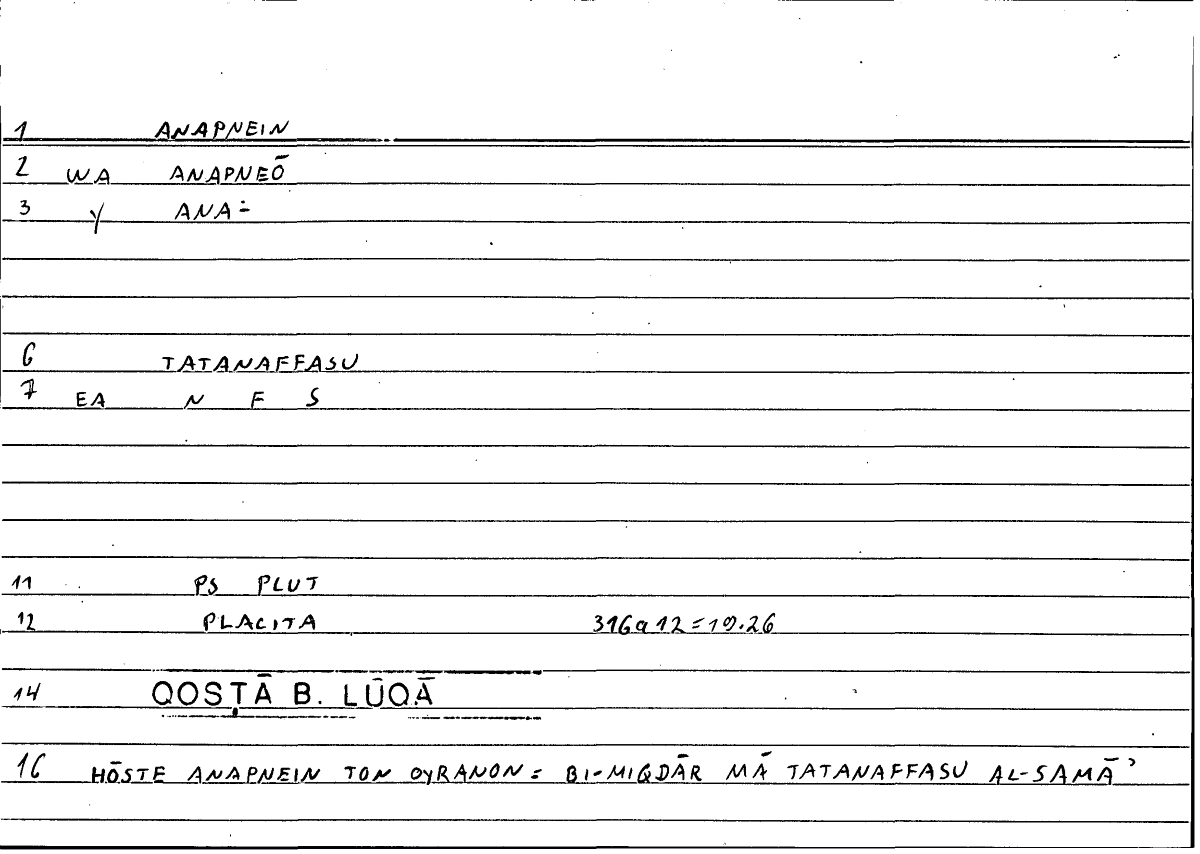 1 ANAPNEIN
2 WA ANAPNEŌ
3 Y ANA-
6 TATANAFFASU
7 EA N F S
11 PS PLUT
12 PLACITA 316a12=19.26
14 QOSṬĀ B. LŪQĀ
16 HŌSTE ANAPNEIN TON OYRANON = BI-MIQDĀR MĀ TATANAFFASU AL-SAMĀʾ